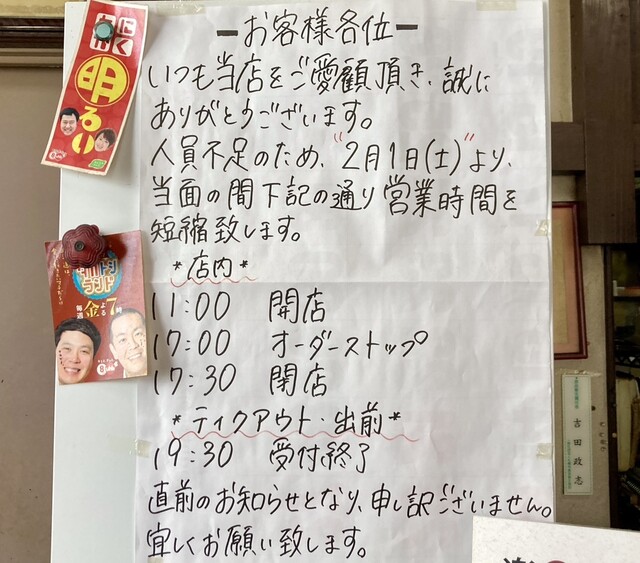 ー お客様各位 ー
いつも当店をご愛顧頂き、誠に
ありがとうございます。
人員不足のため、"2月1日(土)"より、
当面の間下記の通り営業時間を
短縮致します。
*店内*
11:00 開店
17:00 オーダーストップ
17:30 閉店
*テイクアウト・出前*
19:30 受付終了
直前のお知らせとなり、申し訳ございません。
宜しくお願い致します。
にく
明るい
金よる7時
吉田政志